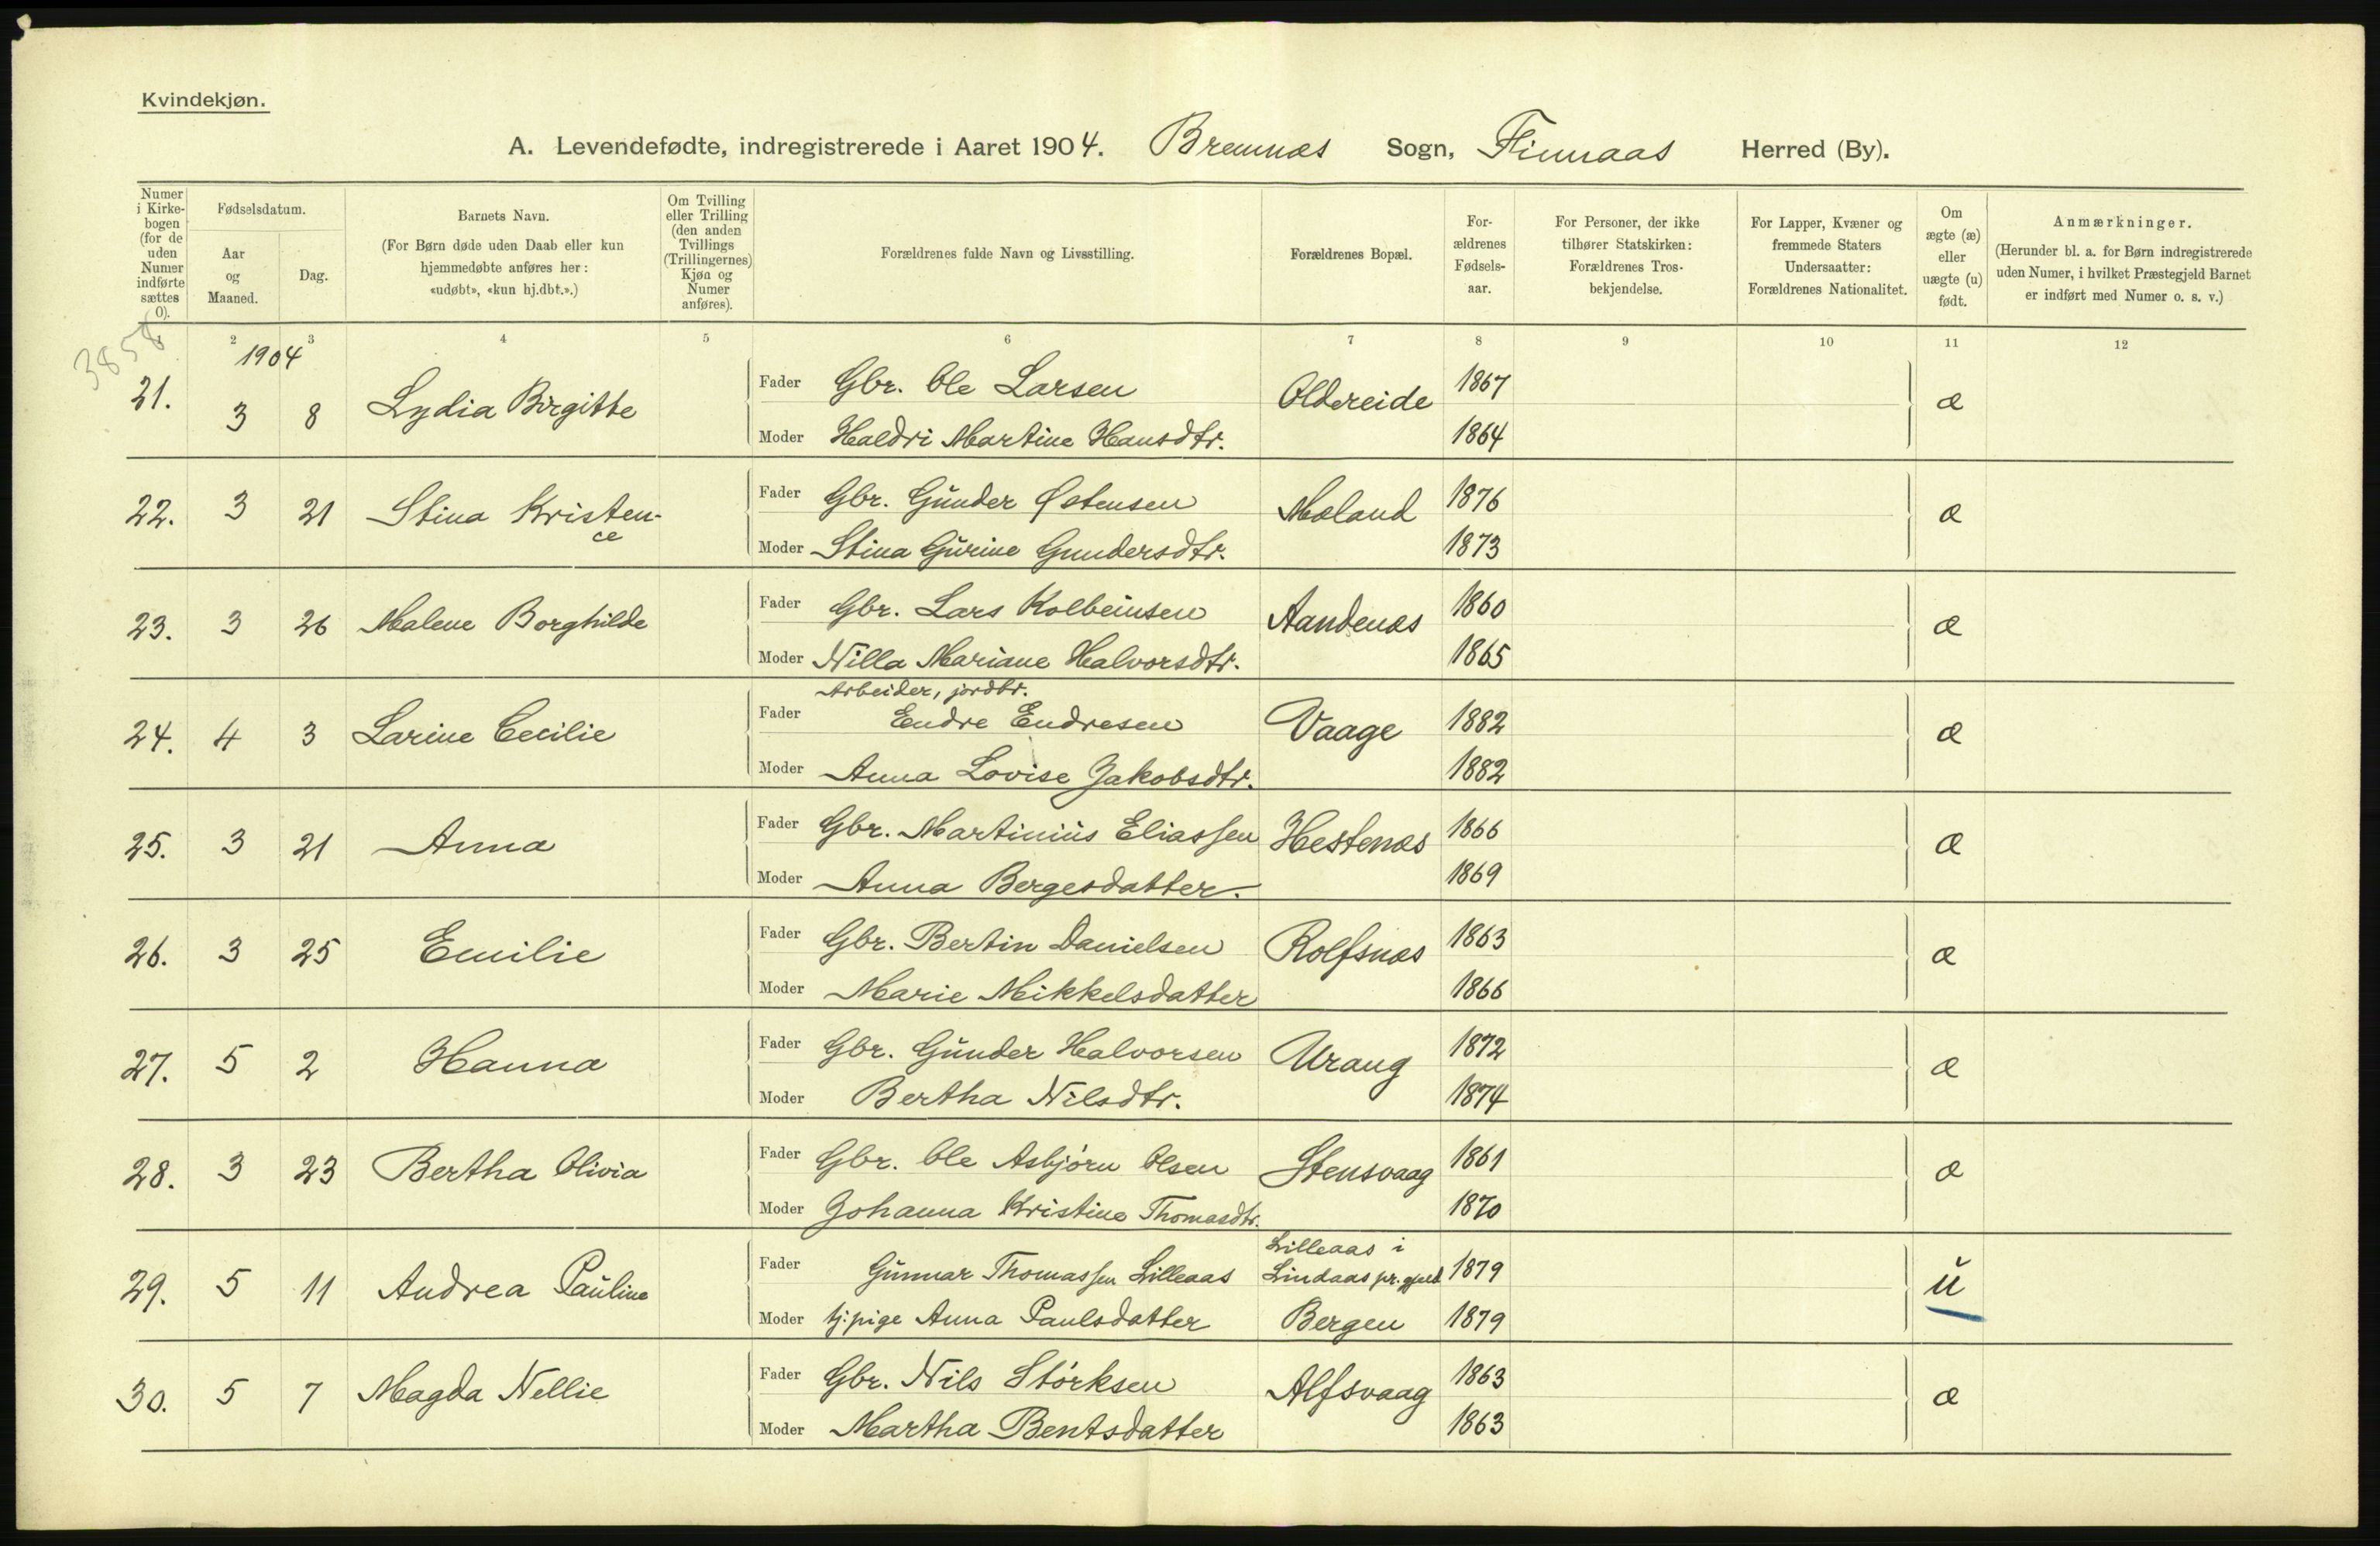 Kvindekjøn.
A. Levendefødte, indregistrerede i Aaret 1904. Bremnæs Sogn, Finnaas Herred (By).
Numer i Kirkebogen (for de uden Numer indførte sættes 0).
Fødselsdatum.
Aar og Maaned.
Dag.
Barnets Navn.
(For Børn døde uden Daab eller kun hjemmedøbte anføres her: «udøbt», «kun hj.dbt.».)
Om Tvilling eller Trilling (den anden Tvillings (Trillingernes) Kjøn og Numer anføres).
Forældrenes fulde Navn og Livsstilling.
Forældrenes Bopæl.
Forældrenes Fødselsaar.
For Personer, der ikke tilhører Statskirken: Forældrenes Trosbekjendelse.
For Lapper, Kvæner og fremmede Staters Undersaatter: Forældrenes Nationalitet.
Om ægte (æ) eller uægte (u) født.
Anmærkninger.
(Herunder bl. a. for Børn indregistrerede uden Numer, i hvilket Præstegjeld Barnet er indført med Numer o. s. v.)
3858
2 3 4 5 6 7 8 9 10 11 12
1904
21. 3 8 Lydia Birgitte Fader Gbr. Ole Larsen Oldereide 1867 æ
Moder Haldri Martine Hansdtr. 1864
22. 3 21 Stina Kristen- Fader Gbr. Gŭnder Østensen Mæland 1876 æ
ce Moder Stina Gŭrine Gundersdtr. 1873
23. 3 26 Malene Borghilde Fader Gbr. Lars Kolbeinsen Aandenæs 1860 æ
Moder Nilla Mariane Halvorsdtr. 1865
Arbeider, jordbr.
24. 4 3 Larine Cecilie Fader Endre Endresen Vaage 1882 æ
Moder Anna Lovise Jakobsdtr. 1882
25. 3 21 Anna Fader Gbr. Martiniŭs Eliassen Hestenæs 1866 æ
Moder Anna Bergesdatter. 1869
26. 3 25 Emilie Fader Gbr. Bertin Danielsen Rolfsnæs 1863 æ
Moder Marie Mikkelsdatter 1866
27. 5 2 Hanna Fader Gbr. Gŭnder Halvorsen Urang 1872 æ
Moder Bertha Nilsdtr. 1874
28. 3 23 Bertha Olivia Fader Gbr. Ole Asbjørn Olsen Stensvaag 1861 æ
Moder Johanna Kristine Thomasdtr. 1870
Lilleaas i
29. 5 11 Andrea Paŭline Fader Gŭnnar Thomassen Lilleaas Lindaas pr.gjeld 1879 ŭ
Moder tj.pige Anna Paulsdatter Bergen 1879
30. 5 7 Magda Nellie Fader Gbr. Nils Størksen Alfsvaag 1863 æ
Moder Martha Bentsdatter 1863